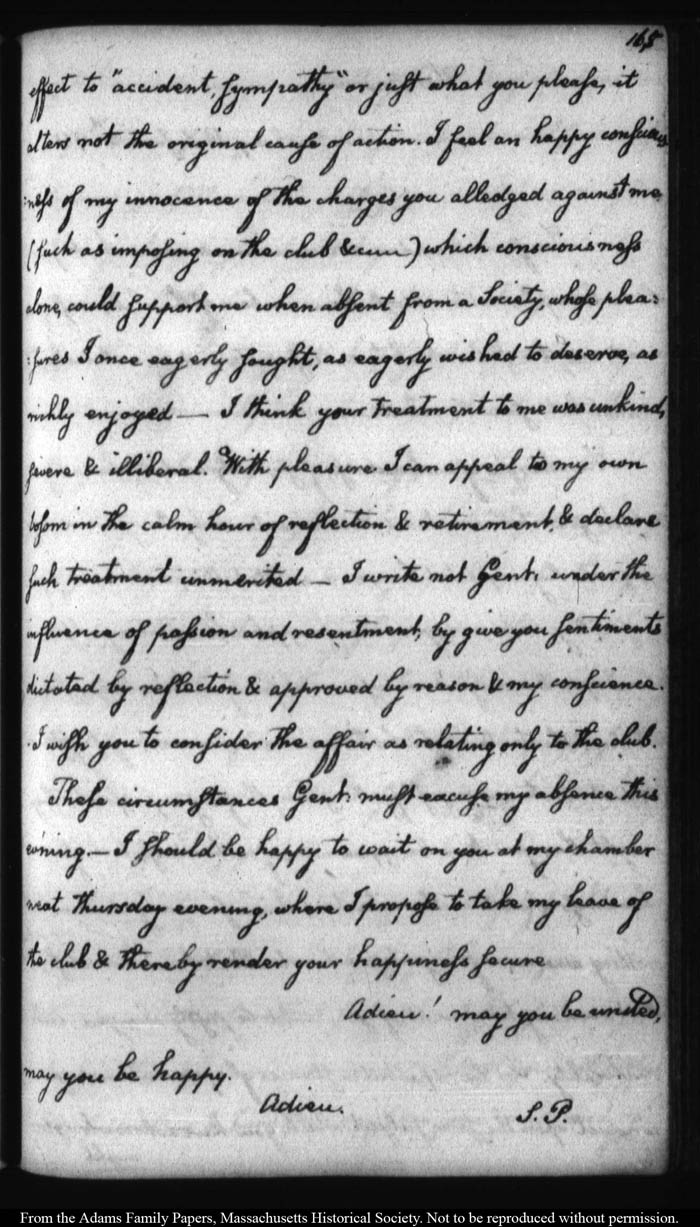 165
effect to "accident, sympathy" or just what you please, it
alters not the original cause of action. I feel an happy conscious
:ness of my innocence of the charges you alledged against me
(such as imposing on the club &c) which consciousness
alone, could support me when absent from a Society, whose plea:
:sures I once eagerly sought, as eagerly wished to deserve, as
richly enjoyed — I think your treatment to me was unkind,
severe & illiberal. With pleasure I can appeal to my own
bosom in the calm hour of reflection & retirement, & declare
such treatment unmerited — I write not Gent: under the
influence of passion and resentment, by give you sentiments
dictated by reflection & approved by reason & my conscience.
I wish you to consider the affair as relating only to the club.
These circumstances Gent: must excuse my absence this
evening. — I should be happy to wait on you at my chamber
next thursday evening, where I propose to take my leave of
the club & thereby render your happiness secure
Adieu! may you be united,
may you be happy.
Adieu.
S. P.
From the Adams Family Papers, Massachusetts Historical Society. Not to be reproduced without permission.